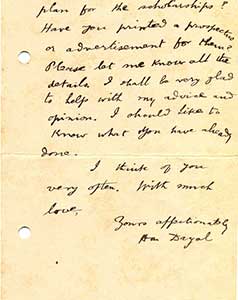 plan for the scholarships?
Have you printed a prospectus
or advertisement for them?
Please let me know all the
details. I shall be very glad
to help with my advice and
opinion. I should like to
know what you have already
done.
I think of you
very often. With much
love,
Yours affectionately
Har Dayal